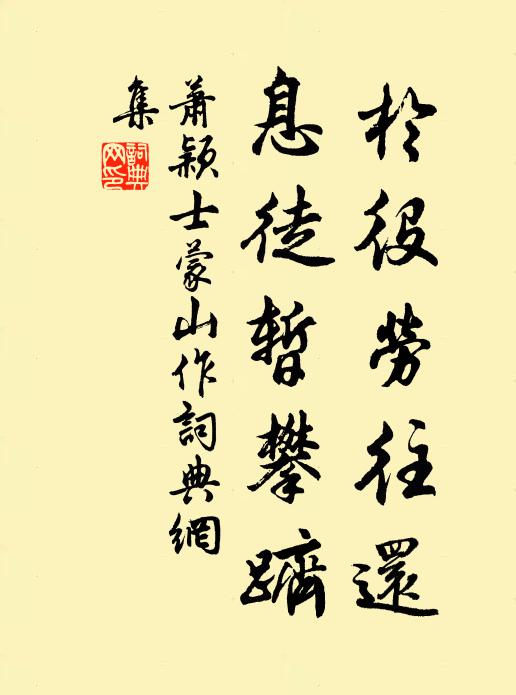 於役勞往還
息徒暫攀躋
蕭穎士蒙山作詞典網
集
詞典
网印